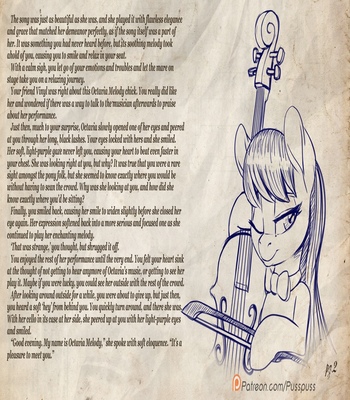 The song was just as beautiful as she was, and she played it with flawless elegance
and grace that matched her demeanor perfectly, as if the song itself was a part of
her. It was something you had never heard before, but its soothing melody took
ahold of you, causing you to smile and relax in your seat.
With a calm sigh, you let go of your emotions and troubles and let the mare on
stage take you on a relaxing journey.
Your friend Vinyl was right about this Octavia Melody chick. You really did like
her and wondered if there was a way to talk to the musician afterwards to praise
about her performance.
Just then, much to your surprise, Octavia slowly opened one of her eyes and peered
at you through her long, black lashes. Your eyes locked with hers and she smiled.
Her soft, light-purple gaze never left you, causing your heart to beat even faster in
your chest. She was looking right at you, but why? It was true that you were a rare
sight amongst the pony folk, but she seemed to know exactly where you would be
without having to scan the crowd. Why was she looking at you, and how did she
know exactly where you'd be sitting?
Finally, you smiled back, causing her smile to widen slightly before she closed her
eye again. Her expression softened back into a more serious and focused one as she
continued to play her enchanting melody.
'That was strange,' you thought, but shrugged it off.
You enjoyed the rest of her performance until the very end. You felt your heart sink
at the thought of not getting to hear anymore of Octavia's music, or getting to see her
play it. Maybe if you were lucky, you could see her outside with the rest of the crowd.
After looking around outside for a while, you were about to give up, but just then,
you heard a soft 'hey' from behind you. You quickly turn around, and there she was.
With her cello in its case at her side, she peered up at you with her light-purple eyes
and smiled.
"Good evening. My name is Octavia Melody," she spoke with soft eloquence. "It's a
pleasure to meet you."
pg.2
Patreon.com/Pusspuss